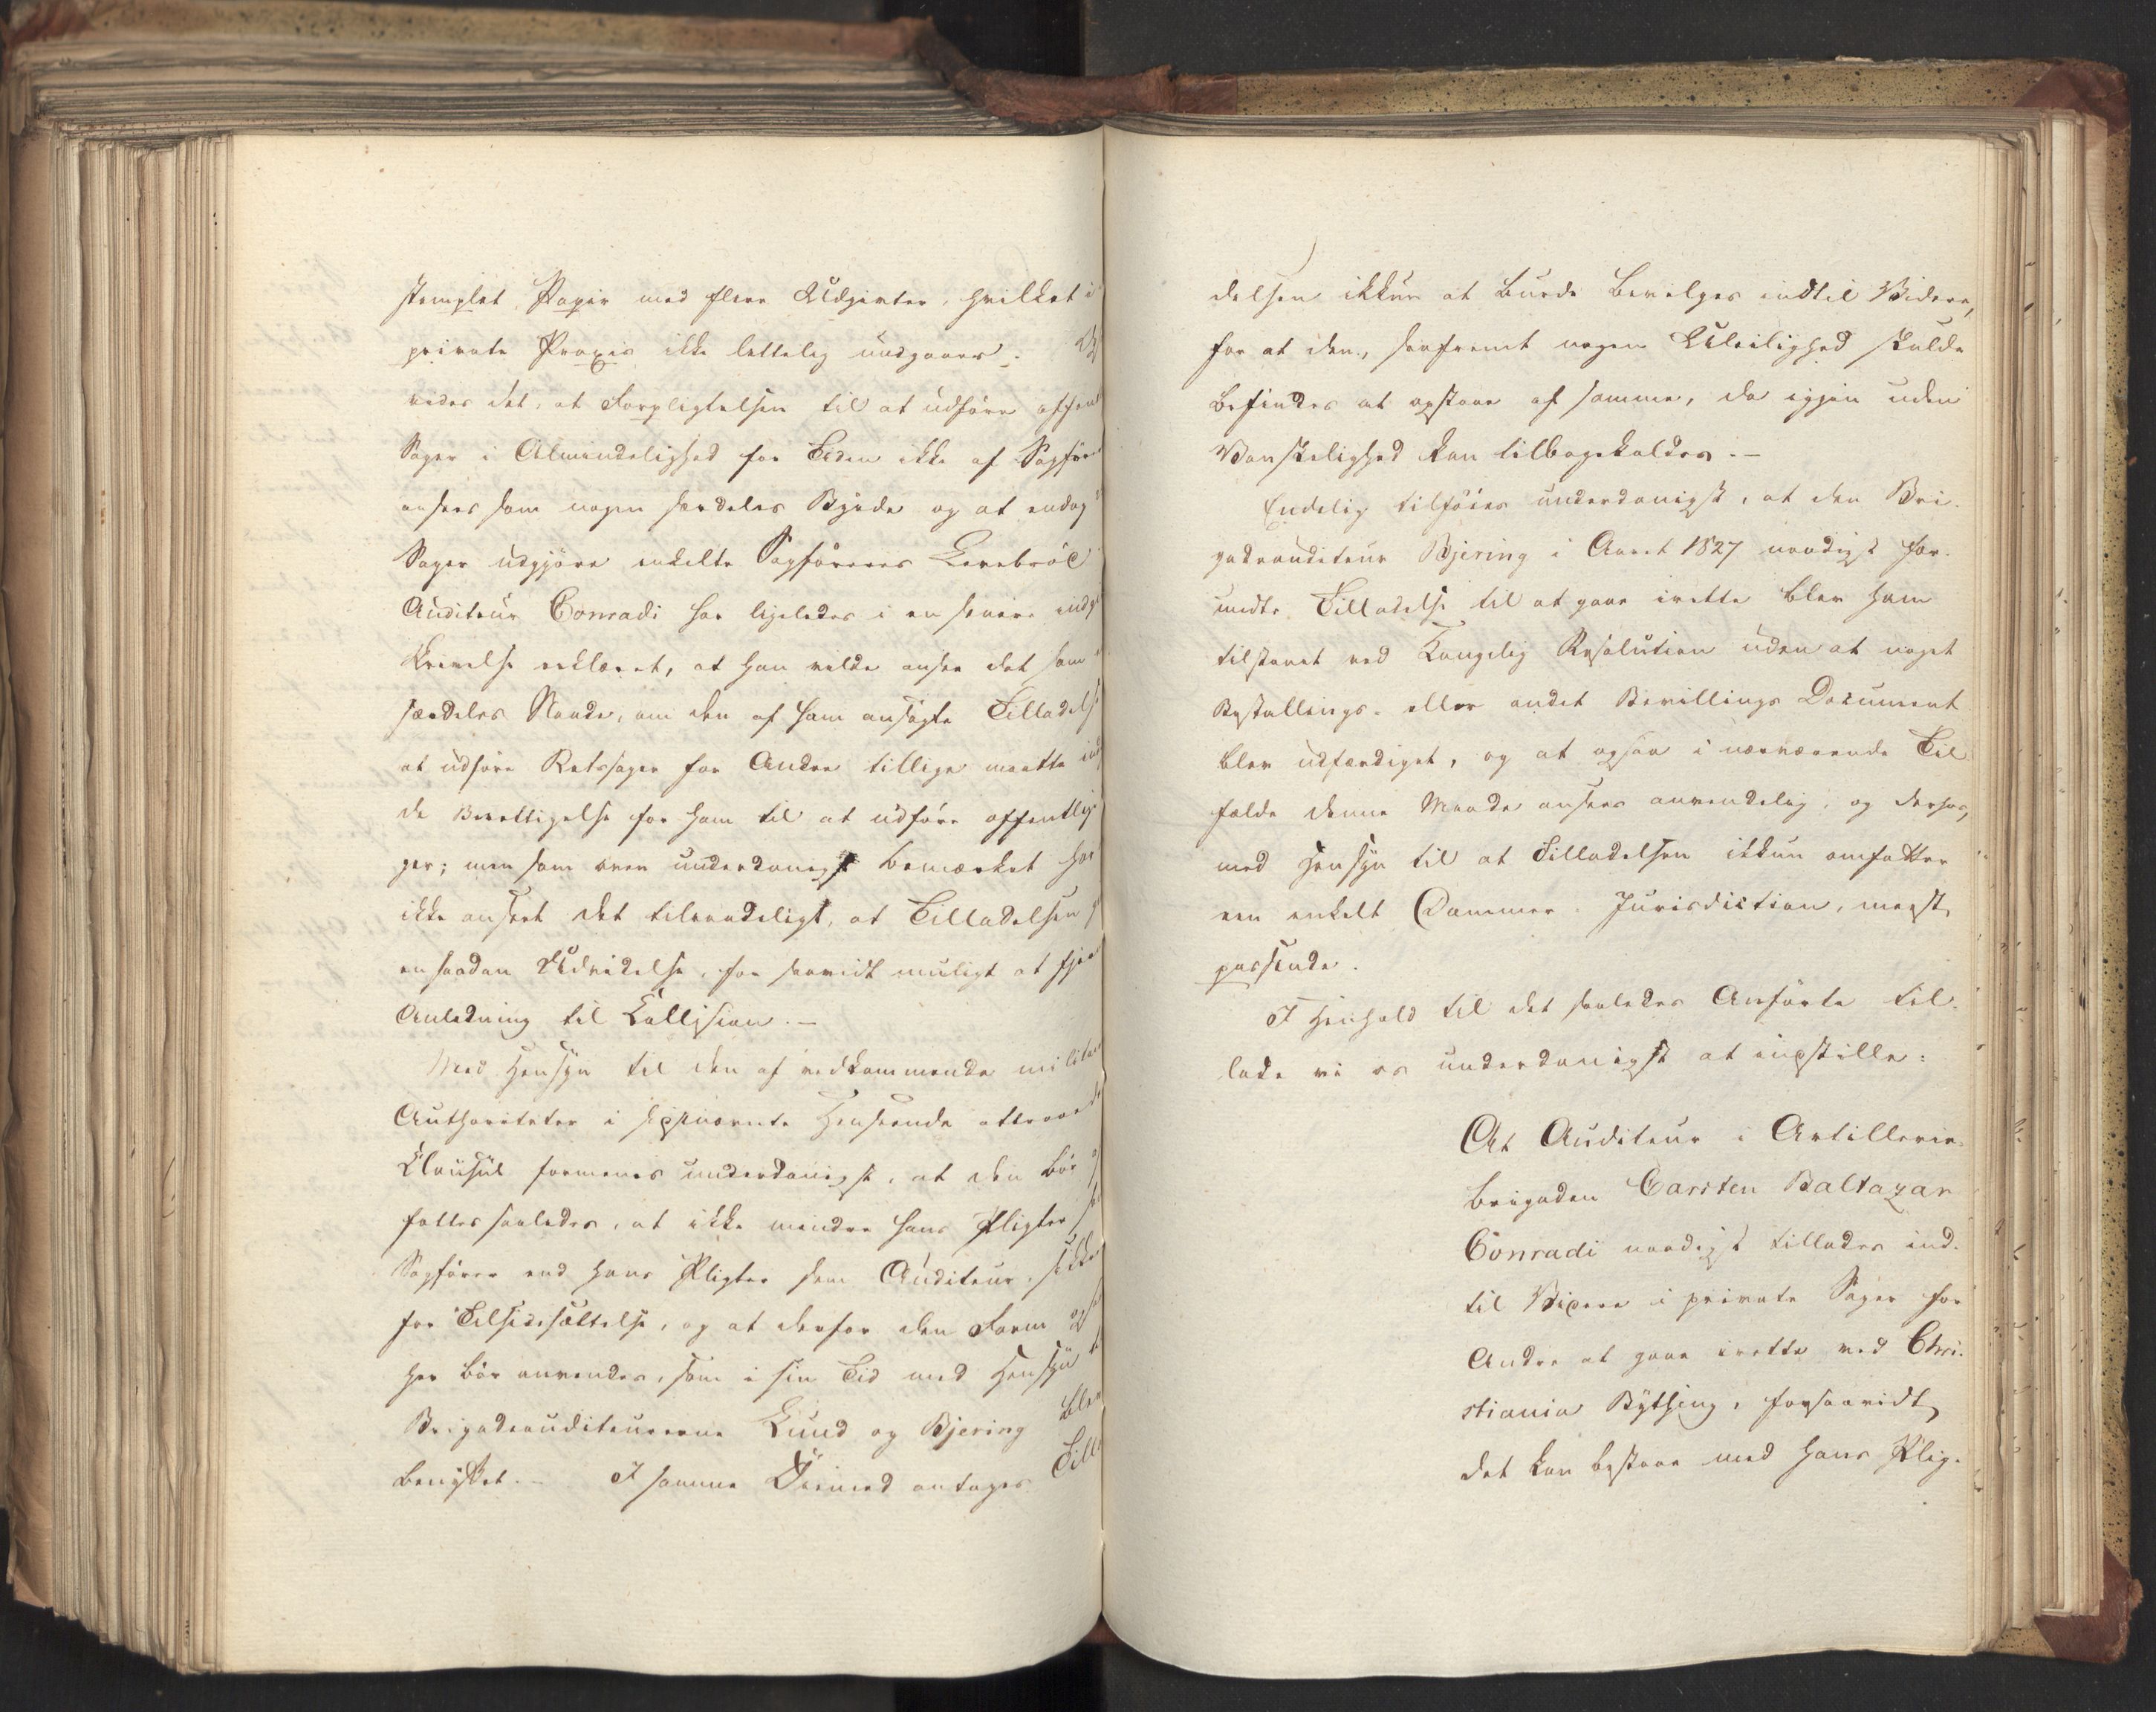 stemplet Papir med flere Udgivter, hvilket i
private Praxis ikke lettelig undgaaes.
vides det, at Forpligtelsen til at udføre offent
Sager i Almindelighed for Tiden ikke af Sagføre
ansees som nogen særdeles Byrde og at endog
Sager udgjøre enkelte Sagføreres Levebrød
Auditeur Conradi har ligeledes i en senere indg
Skrivelse erklæret, at han vilde ansee det som
særdeles Naade, om den af ham ansøgte Tilladelse
at udføre Retssager for Andre tillige maatte ind
de Berettigelse for ham til at udføre offentlige
ger; men som oven underdanigst bemærket har
ikke anseet det tilraadeligt, at Tilladelsen
en saadan Udvidelse, for saavidt muligt at fjer
Anledning til Collision.-
Med Hensyn til den af vedkommende militære
Authoriteter i sidstnævnte Henseende attraaede
Clausul formenes underdanigst, at den bør
fattes saaledes, at ikke mindre hans Pligter
Sagfører end hans Pligter som Auditeur, sikkre
for Tilsidesættelse, og at derfor den Form og
her bør anvendes, som i sin Tid med Hensyn t
Brigadeauditeurerne Lund og Bjering blev
benyttet.- I samme Øiemed antages Till
delsen ikkun at burde bevilges indtil Videre,
for at den, saafremt nogen Uleilighed skulde
befindes at opstaae af samme, da igjen uden
Vanskelighed kan tilbagekaldes.-
Endelig tilføies underdanigst, at den Bri-
gadeauditeur Bjering i Aaret 1827 naadigst for-
undte Tilladelse til at gaae irette blev ham
tilstaaet ved Kongelig Resolution uden at noget
Bestallings- eller andet Bevillings Document
blev udfærdiget, og at ogsaa i nærværende Til-
fælde denne Maade ansees anvendelig, og derhos,
med Hensyn til at Tilladelsen ikkun omfatter
een enkelt Dommer-Jurisdiction, meest
passende.
I Henhold til det saaledes Anførte til-
lade vi os underdanigst at indstille:
At Auditeur i Artillerie-
brigaden Carsten Baltazar
Conradi naadigst tillades ind-
til Videre i private Sager for
Andre at gaae irette ved Chri-
stiania Bything, forsaavidt
det kan bestaae med hans Plig-